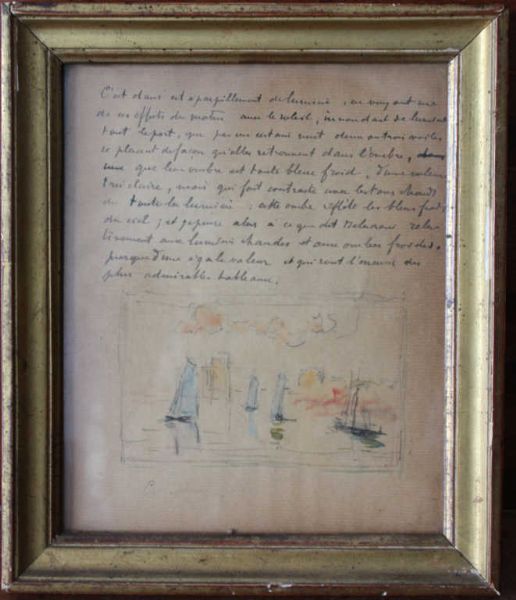 C'est dans cet éparpillement de lumière, en voyant une
de ces effets du matin avec le soleil, inondant de lumière
tout le port, que par un certain vent deux ou trois voiles
se placent de façon qu'elles retournent dans l'ombre,
que leur ombre est toute bleue froid, d'une valeur
très claire, mais qui fait contraste avec les tons chauds
de toute la lumière : cette ombre reflète les bleus froids
du ciel ; et je pense alors à ce que dit Delacroix rela-
tivement aux lumières chaudes et aux ombres froides,
presque d'une égale valeur et qui sont l'œuvre des
plus admirables tableaux.